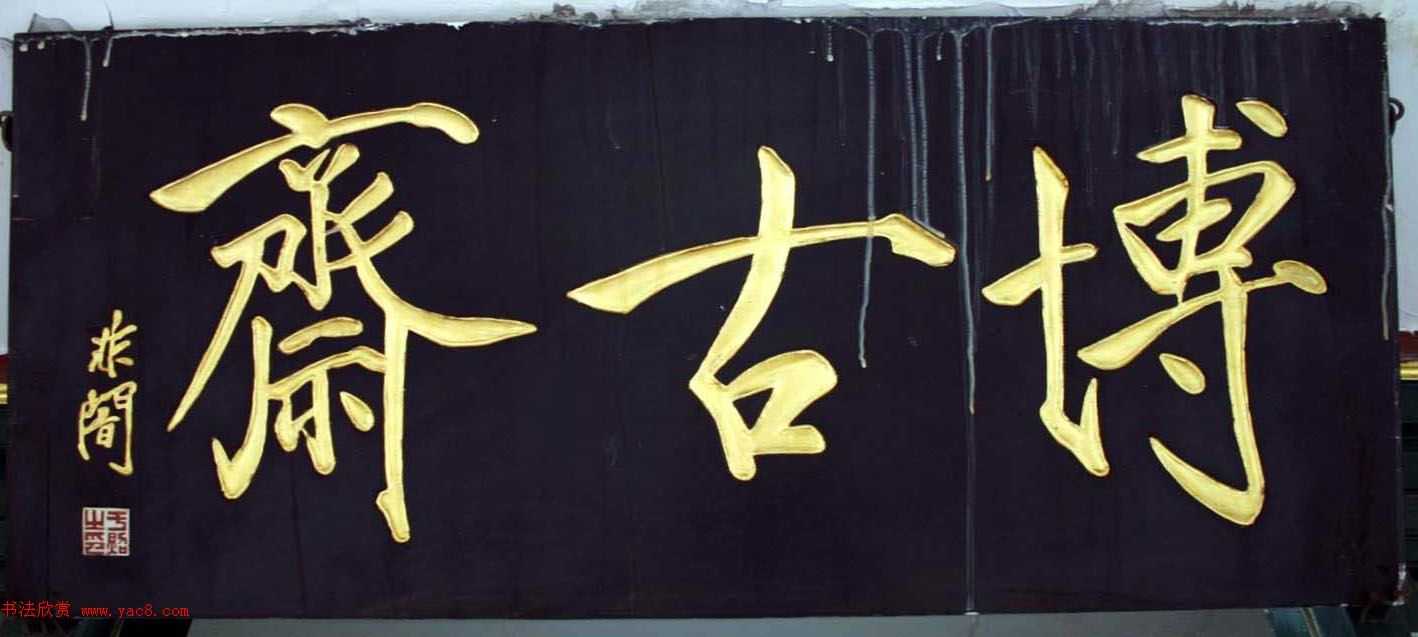 博古齋
非闇
于照之印
书法欣赏 www.yac8.com